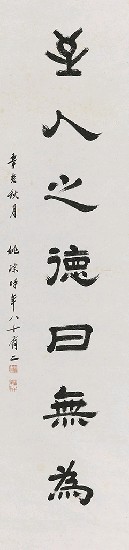 至人之德曰無為
辛亥秋月 姚琮時年八十有二